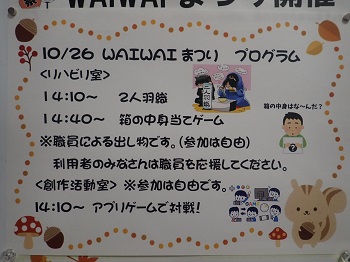 WAIWAIまつり開催
10/26 WAIWAIまつり プログラム
<リハビリ室>
14:10～ 2人羽織
14:40～ 箱の中身当てゲーム
箱の中身はな～んだ?
※職員による出し物です。(参加は自由)
利用者のみなさんは職員を応援してください。
<創作活動室> ※参加は自由です。
14:10～ アプリゲームで対戦!